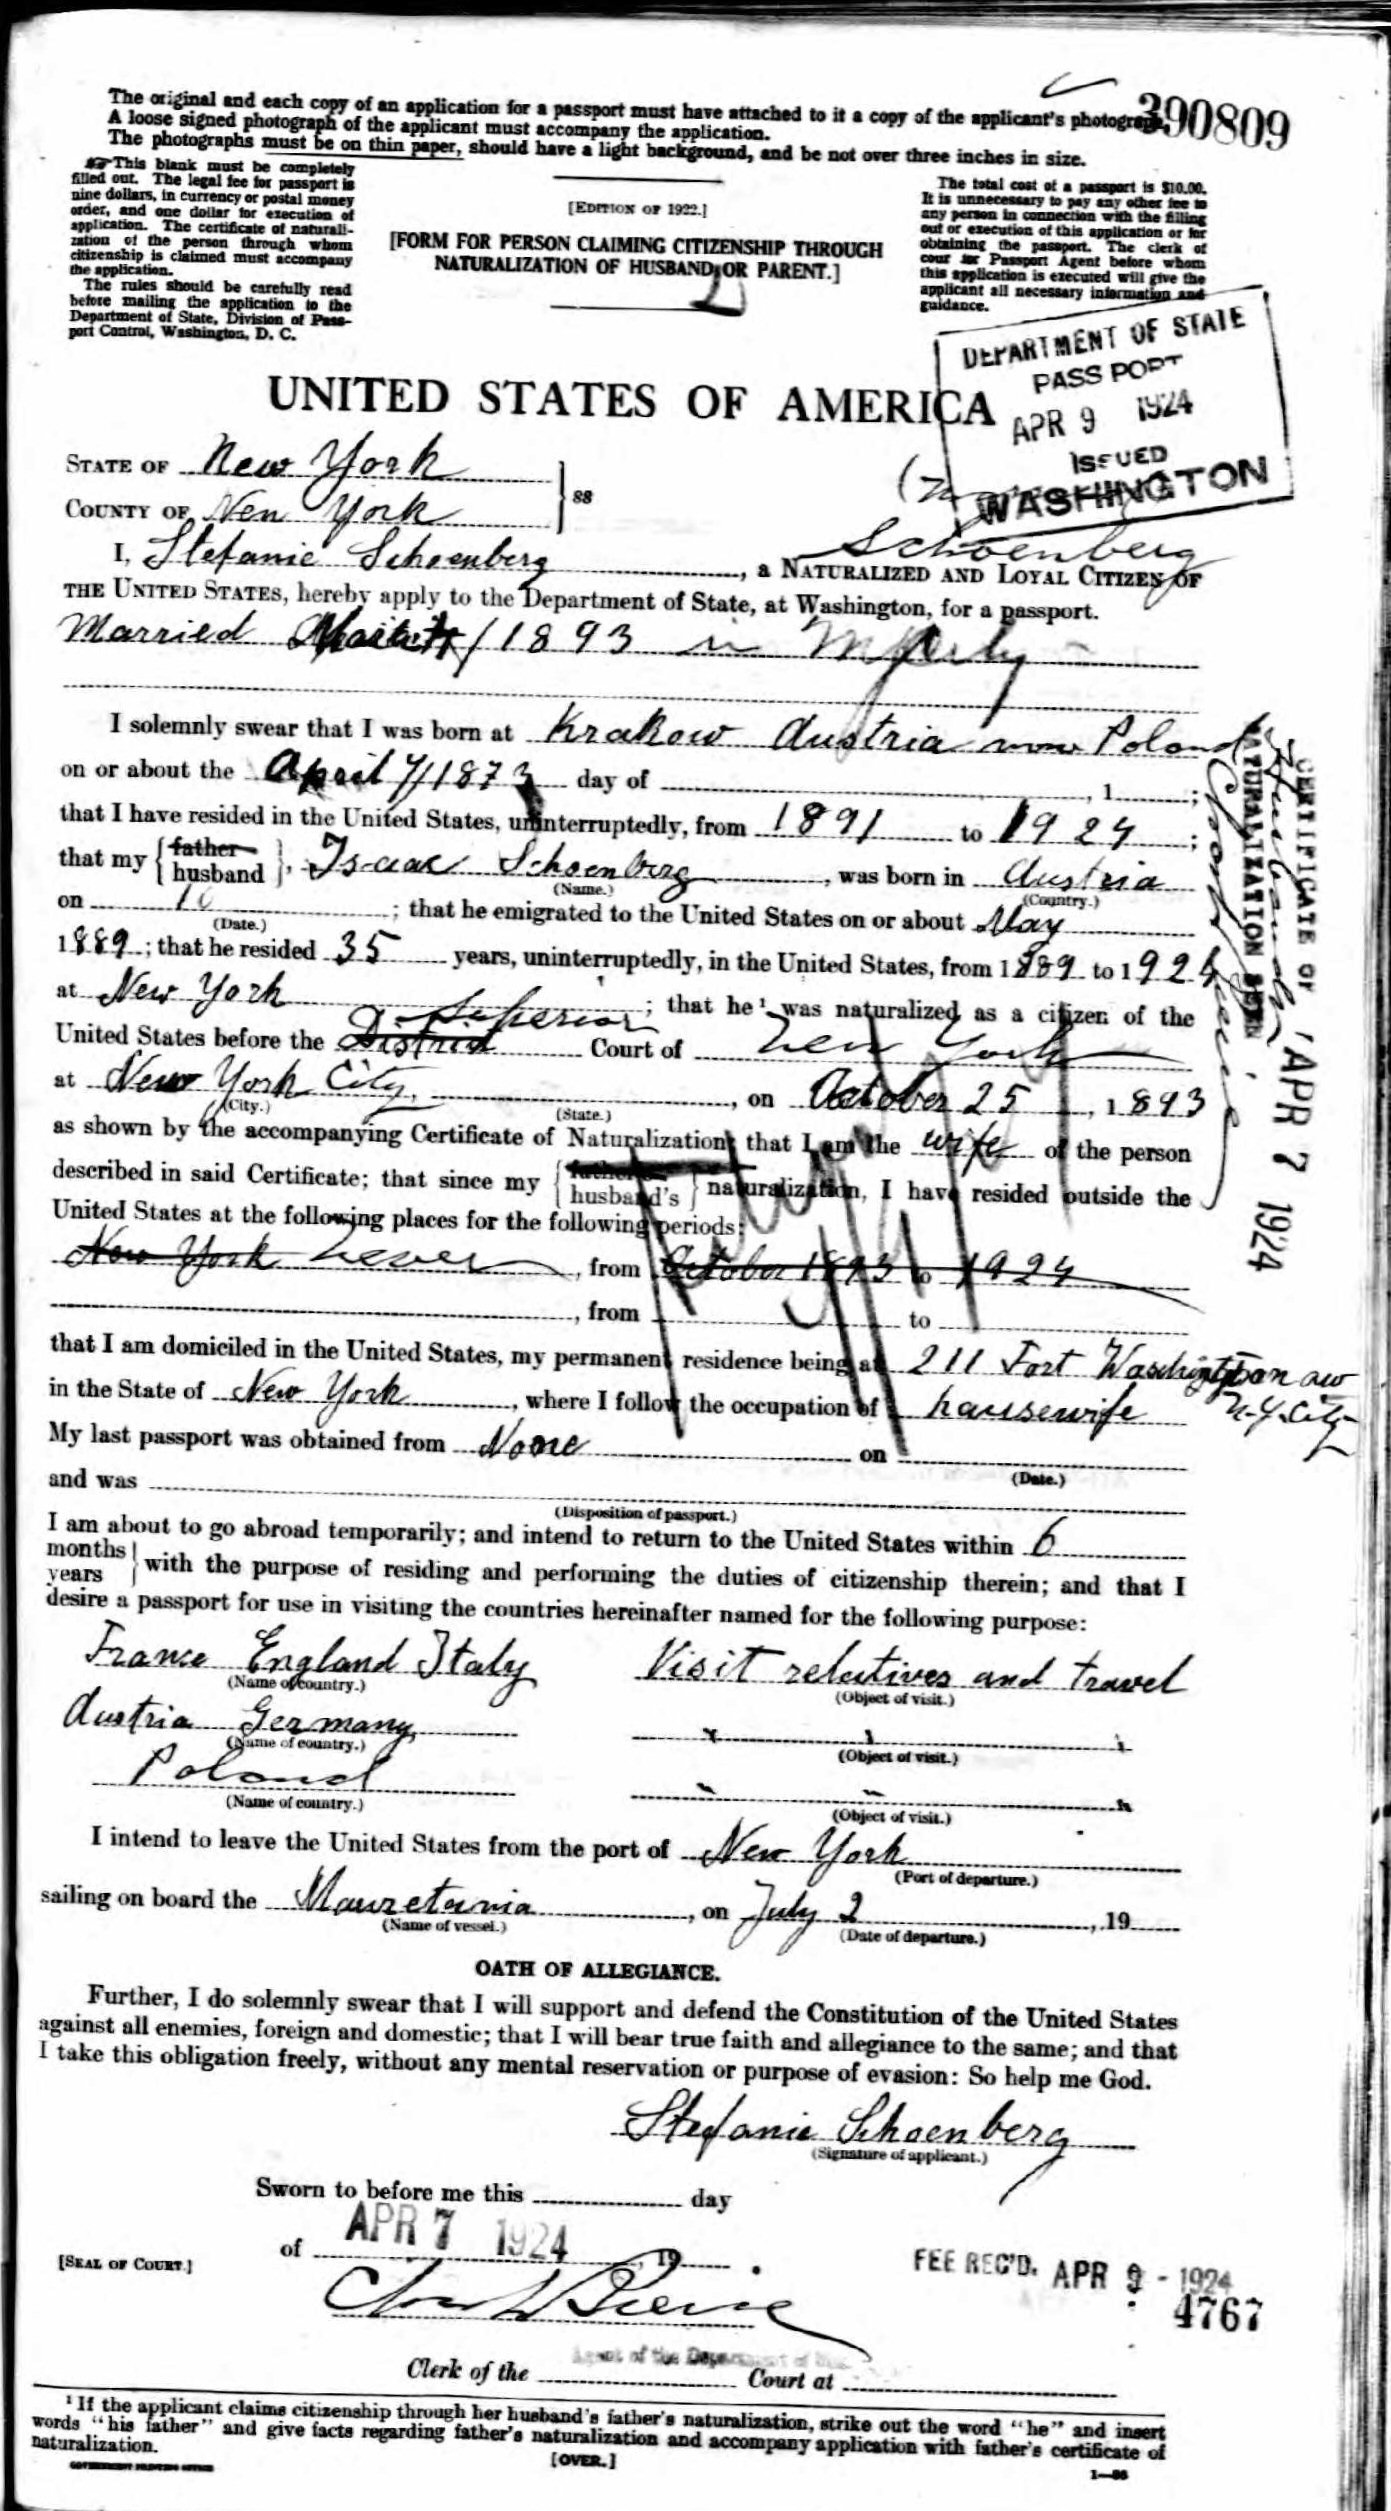 The original and each copy of an application for a passport must have attached to it a copy of the applicant's photograph.
390809
A loose signed photograph of the applicant must accompany the application.
The photographs must be on thin paper, should have a light background, and be not over three inches in size.
☞This blank must be completely
filled out. The legal fee for passport is
nine dollars, in currency or postal money
order, and one dollar for execution of
application. The certificate of naturali-
zation of the person through whom
citizenship is claimed must accompany
the application.
The rules should be carefully read
before mailing the application to the
Department of State, Division of Pass-
port Control, Washington, D. C.
[EDITION OF 1922.]
[FORM FOR PERSON CLAIMING CITIZENSHIP THROUGH
NATURALIZATION OF HUSBAND OR PARENT.]
The total cost of a passport is $10.00.
It is unnecessary to pay any other fee to
any person in connection with the filling
out or execution of this application or for
obtaining the passport. The clerk of
cour or Passport Agent before whom
this application is executed will give the
applicant all necessary information and
guidance.
DEPARTMENT OF STATE
PASSPORT
APR 9 1924
ISSUED
WASHINGTON
UNITED STATES OF AMERICA
STATE OF New York
COUNTY OF New York
ss
Schoenberg
I, Stefanie Schoenberg, a NATURALIZED AND LOYAL CITIZEN OF
THE UNITED STATES, hereby apply to the Department of State, at Washington, for a passport.
Married 1893 in
I solemnly swear that I was born at Krakow Austria now Poland
on or about the April 7/1873 day of , 1 ;
that I have resided in the United States, uninterruptedly, from 1891 to 1924;
that my {father husband}, Isaac Schoenberg, was born in Austria
(Name.) (Country.)
on 10; that he emigrated to the United States on or about May
(Date.)
1889; that he resided 35 years, uninterruptedly, in the United States, from 1889 to 1924
at New York; that he¹ was naturalized as a citizen of the
Superior
United States before the District Court of New York
at New York City, , on October 25, 1893
(City.) (State.)
as shown by the accompanying Certificate of Naturalization; that I am the wife of the person
described in said Certificate; that since my {father's husband's} naturalization, I have resided outside the
United States at the following places for the following periods:
New York never, from October 1893 to 1924
, from to
that I am domiciled in the United States, my permanent residence being at 211 Fort Washington ave
N.Y. City
in the State of New York, where I follow the occupation of housewife
My last passport was obtained from None on
(Date.)
and was
(Disposition of passport.)
I am about to go abroad temporarily; and intend to return to the United States within 6
months
years } with the purpose of residing and performing the duties of citizenship therein; and that I
desire a passport for use in visiting the countries hereinafter named for the following purpose:
France England Italy Visit relatives and travel
(Name of country.) (Object of visit.)
Austria Germany " " "
(Name of country.) (Object of visit.)
Poland " " "
(Name of country.) (Object of visit.)
I intend to leave the United States from the port of New York
(Port of departure.)
sailing on board the Mauretania, on July 2, 19
(Name of vessel.) (Date of departure.)
OATH OF ALLEGIANCE.
Further, I do solemnly swear that I will support and defend the Constitution of the United States
against all enemies, foreign and domestic; that I will bear true faith and allegiance to the same; and that
I take this obligation freely, without any mental reservation or purpose of evasion: So help me God.
Stefanie Schoenberg
(Signature of applicant.)
Sworn to before me this day
of APR 7 1924, 19
[SEAL OF COURT.]
FEE REC'D. APR 9 - 1924
4767
Agent of the Department of State
Clerk of the Court at
¹ If the applicant claims citizenship through her husband's father's naturalization, strike out the word "he" and insert
words "his father" and give facts regarding father's naturalization and accompany application with father's certificate of
naturalization.
[OVER.]
GOVERNMENT PRINTING OFFICE
CERTIFICATE OF
NATURALIZATION SEEN
APR 7 1924